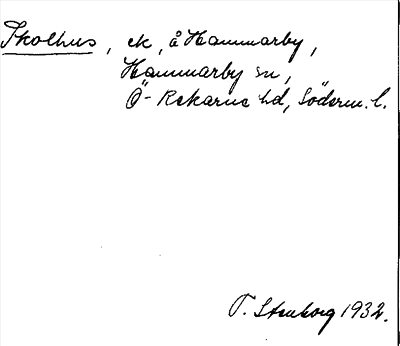 Skolhus, ek, å Hammarby,
Hammarby sn,
Ö-Rekarne hd, Söderm. l.
T. Stenborg 1932.